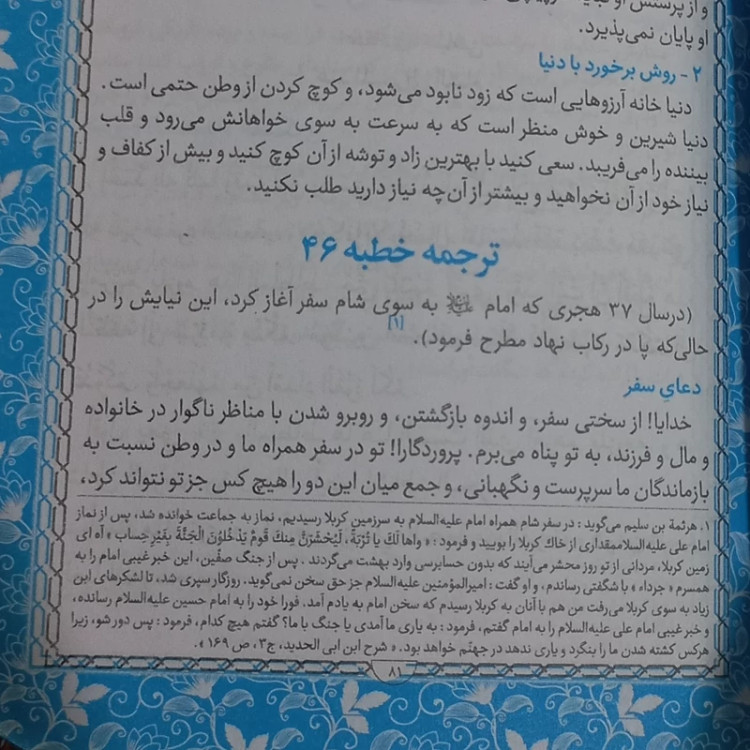 و از پرستش او
او پایان نمی‌پذیرد.
۲ - روش برخورد با دنیا
دنیا خانه آرزوهایی است که زود نابود می‌شود، و کوچ کردن از وطن حتمی است.
دنیا شیرین و خوش منظر است که به سرعت به سوی خواهانش می‌رود و قلب
بیننده را می‌فریبد. سعی کنید با بهترین زاد و توشه از آن کوچ کنید و بیش از کفاف و
نیاز خود از آن نخواهید و بیشتر از آن‌چه نیاز دارید طلب نکنید.
ترجمه خطبه ۴۶
(درسال ۳۷ هجری که امام علیه‌السلام به سوی شام سفر آغاز کرد، این نیایش را در
حالی‌که پا در رکاب نهاد مطرح فرمود).[۱]
دعای سفر
خدایا! از سختی سفر، و اندوه بازگشتن، و روبرو شدن با مناظر ناگوار در خانواده
و مال و فرزند، به تو پناه می‌برم. پروردگارا! تو در سفر همراه ما و در وطن نسبت به
بازماندگان ما سرپرست و نگهبانی، و جمع میان این دو را هیچ کس جز تو نتواند کرد،
۱. هرثمة بن سلیم می‌گوید: در سفر شام همراه امام علیه‌السلام به سرزمین کربلا رسیدیم، نماز به جماعت خوانده شد، پس از نماز
امام علی علیه‌السلاممقداری از خاک کربلا را بویید و فرمود: «واها لَكَ يا تُرْبَةُ، لَيُحْشَرَنَّ مِنكَ قَومٌ يَدْخُلُونَ الْجَنَّةَ بِغَيْرِ حِساب» آه ای
زمین کربلا، مردانی از تو روز محشر می‌آیند که بدون حسابرسی وارد بهشت می‌گردند. پس از جنگ صفّین، این خبر غیبی امام را به
همسرم «جرداء» با شگفتی رساندم، و او گفت: امیرالمؤمنین علیه‌السلام جز حق سخن نمی‌گوید. روزگار سپری شد، تا لشکرهای ابن
زیاد به سوی کربلا می‌رفت من هم با آنان به کربلا رسیدم که سخن امام به یادم آمد. فورا خود را به امام حسین علیه‌السلام رسانده،
و خبر غیبی امام علی علیه‌السلام را به امام گفتم، فرمود: به یاری ما آمدی یا جنگ با ما؟ گفتم هیچ کدام، فرمود: پس دور شو، زیرا
هرکس کشته شدن ما را بنگرد و یاری ندهد در جهنّم خواهد بود. «شرح ابن ابی الحدید، ج۳، ص ۱۶۹».
۸۱